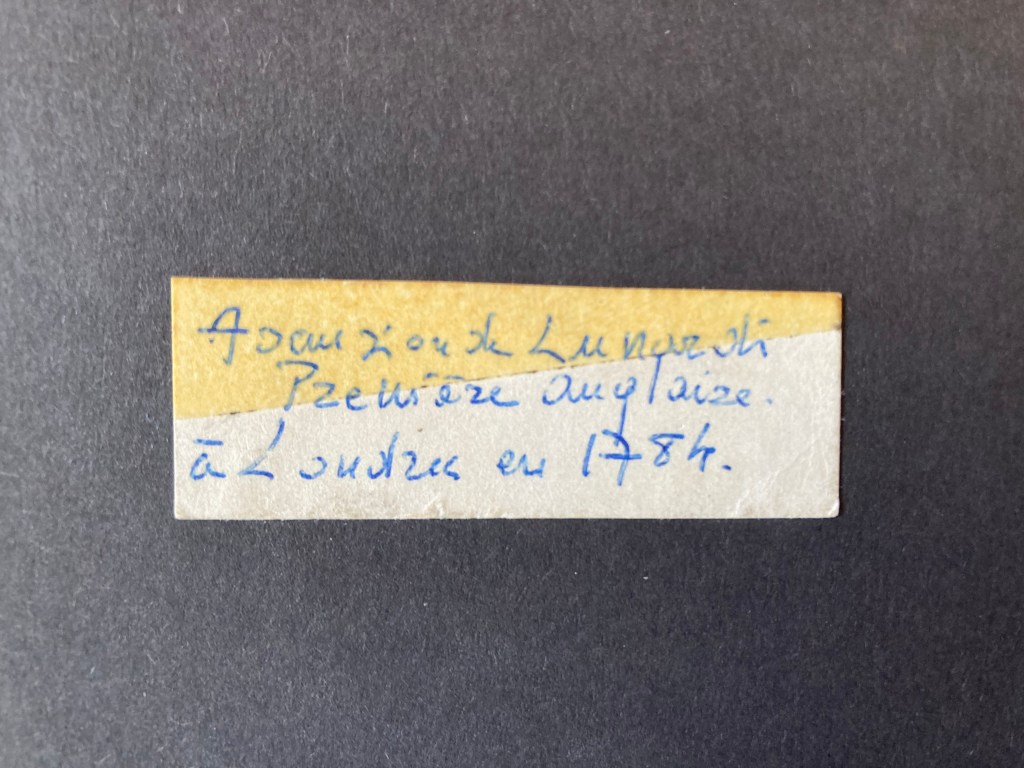 Ascenzion de Lunardi
Première anglaize.
à Londres en 1784.